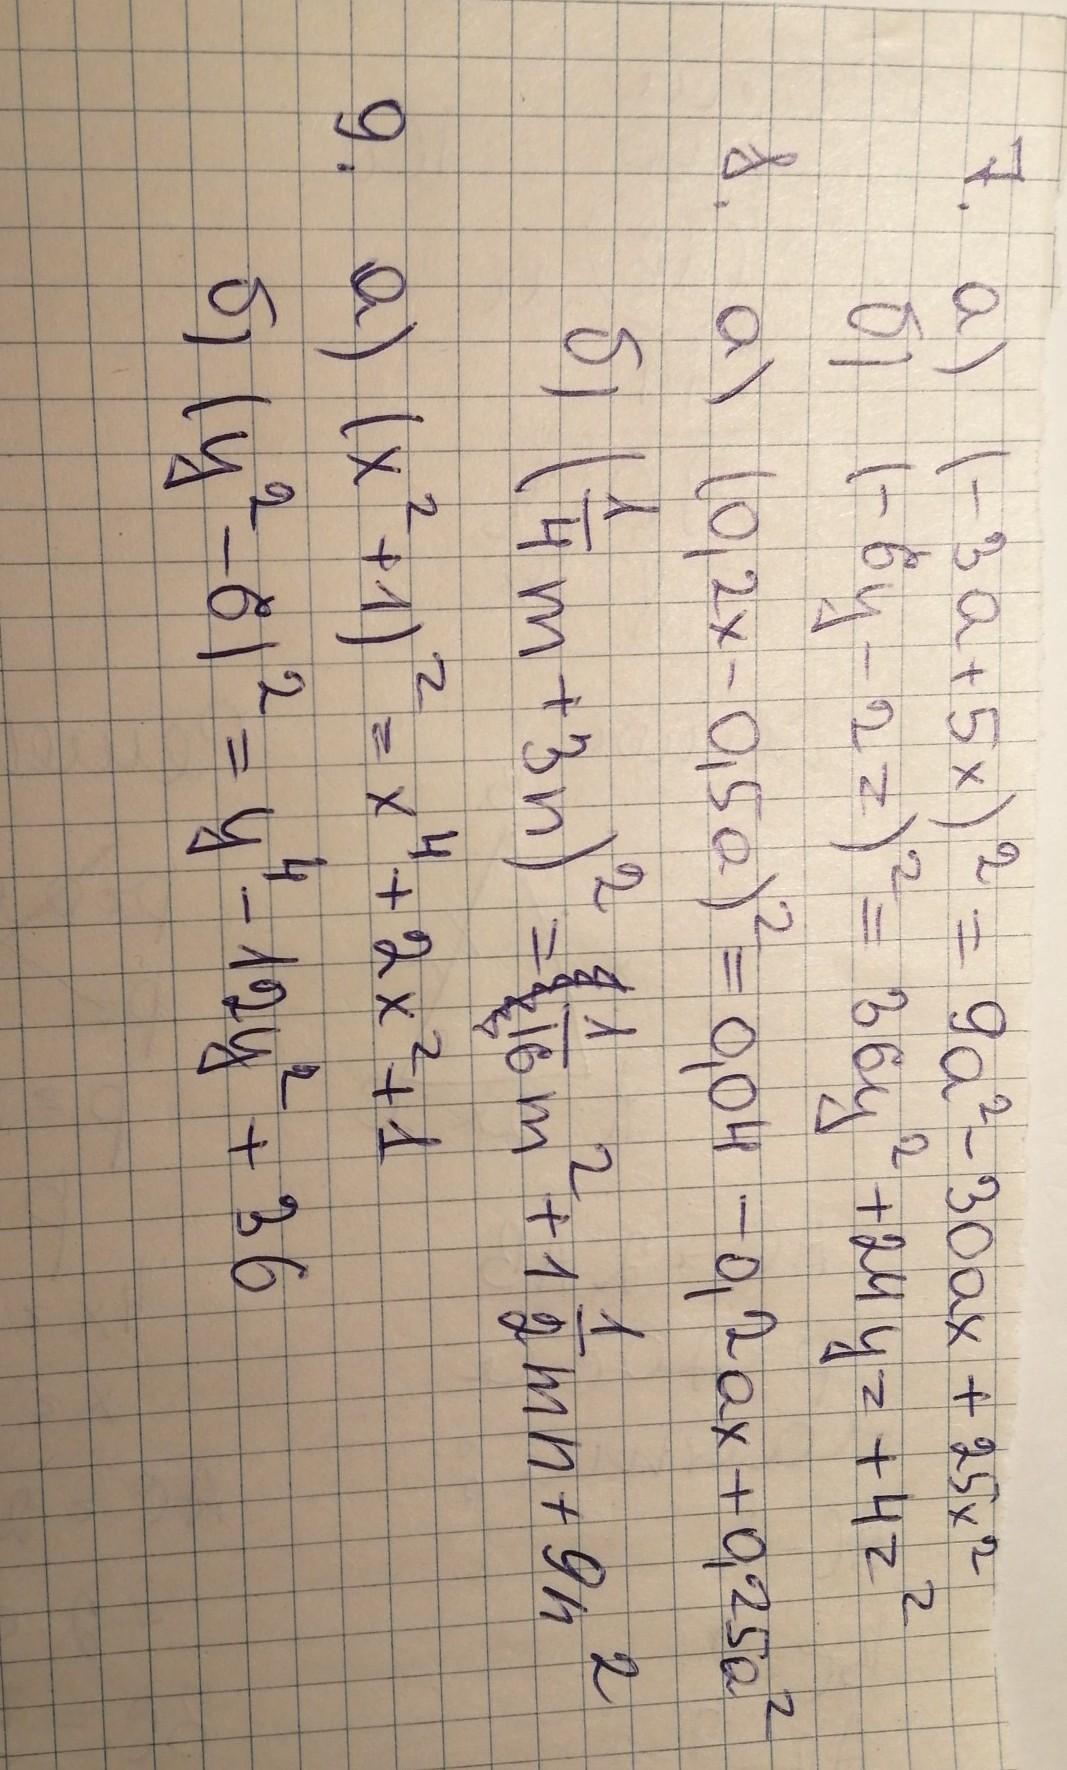 7. а) (-3a+5x)² = 9a² - 30ax + 25x²
б) (-6y-2z)² = 36y² + 24yz + 4z²
8. а) (0,2x - 0,5a)² = 0,04 - 0,2ax + 0,25a²
б) (1/4 m + 3n)² = 1/16 m² + 1 1/2 mn + 9n²
9. а) (x² + 1)² = x⁴ + 2x² + 1
б) (y² - 6)² = y⁴ - 12y² + 36